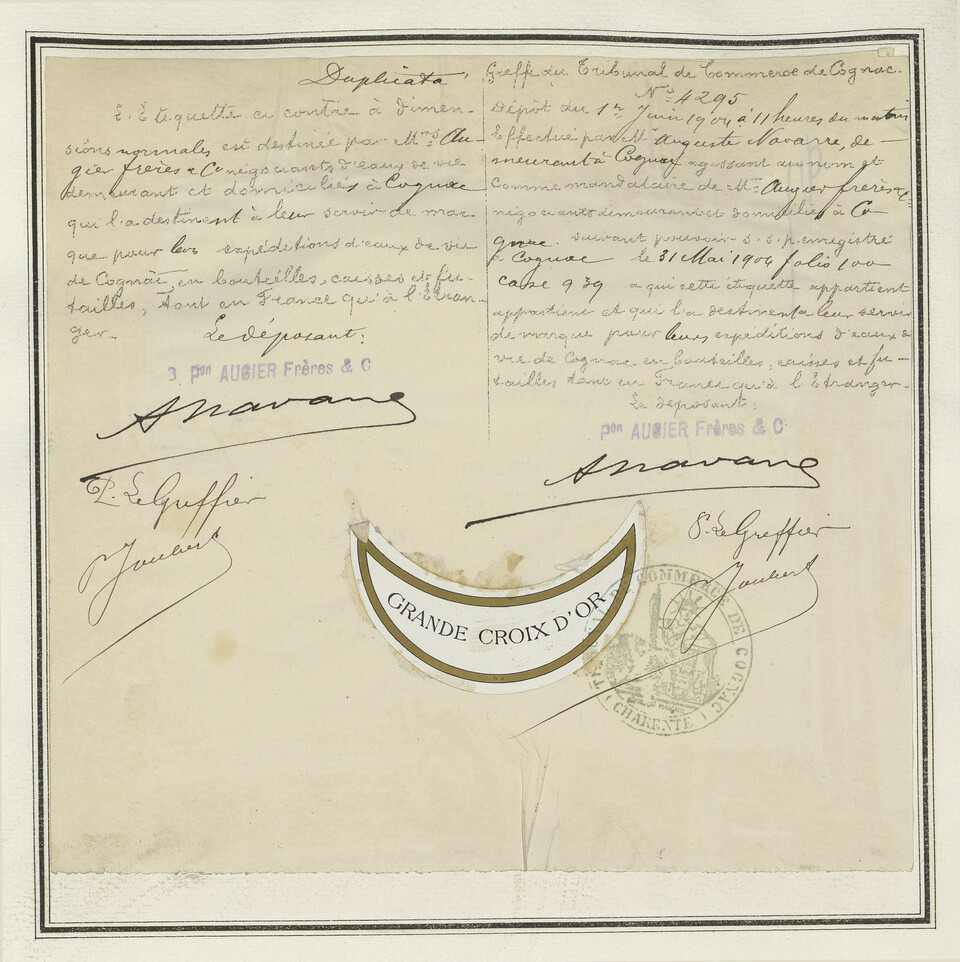 Duplicata
L'Etiquette ci contre à dimen-
sions normales est destinée par Mrs Au-
gier frères & Co negociants d'eaux de vie
demeurant et domiciliés à Cognac
qui la destinent à leur servir de mar-
que pour les expéditions d'eaux de vie
de Cognac, en bouteilles, caisses et fu-
tailles, tant en France qu'à l'Etran-
ger.
Le déposant:
Pon AUGIER Frères & C
ANavarre
P. Le Greffier
Joubert
Greffe du Tribunal de Commerce de Cognac.
No 4295
Dépôt du 1er Juin 1904 à 11 heures du matin
Effectué par Mr Auguste Navarre, de-
meurant à Cognac agissant au nom et
comme mandataire de Mrs Augier frères & Co
negociants demeurant et domiciliés à Co
gnac. suivant pouvoir s.s.p. enregistré
à Cognac le 31 Mai 1904 folio 100
case 939 a qui cette étiquette appartient
appartient et qui la destinent a leur servir
de marque pour leurs expéditions d'eaux de
vie de Cognac en bouteilles, caisses et fu-
tailles tant en France qu'à l'Etranger.
Le deposant:
Pon AUGIER Frères & C
ANavarre
P. Le Greffier
Joubert
GRANDE CROIX D'OR
TRIBUNAL DE COMMERCE DE COGNAC
(CHARENTE)